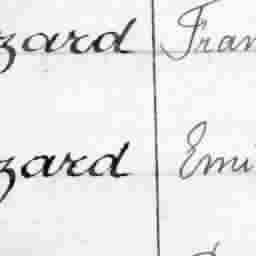 zard Fran
zard Emi